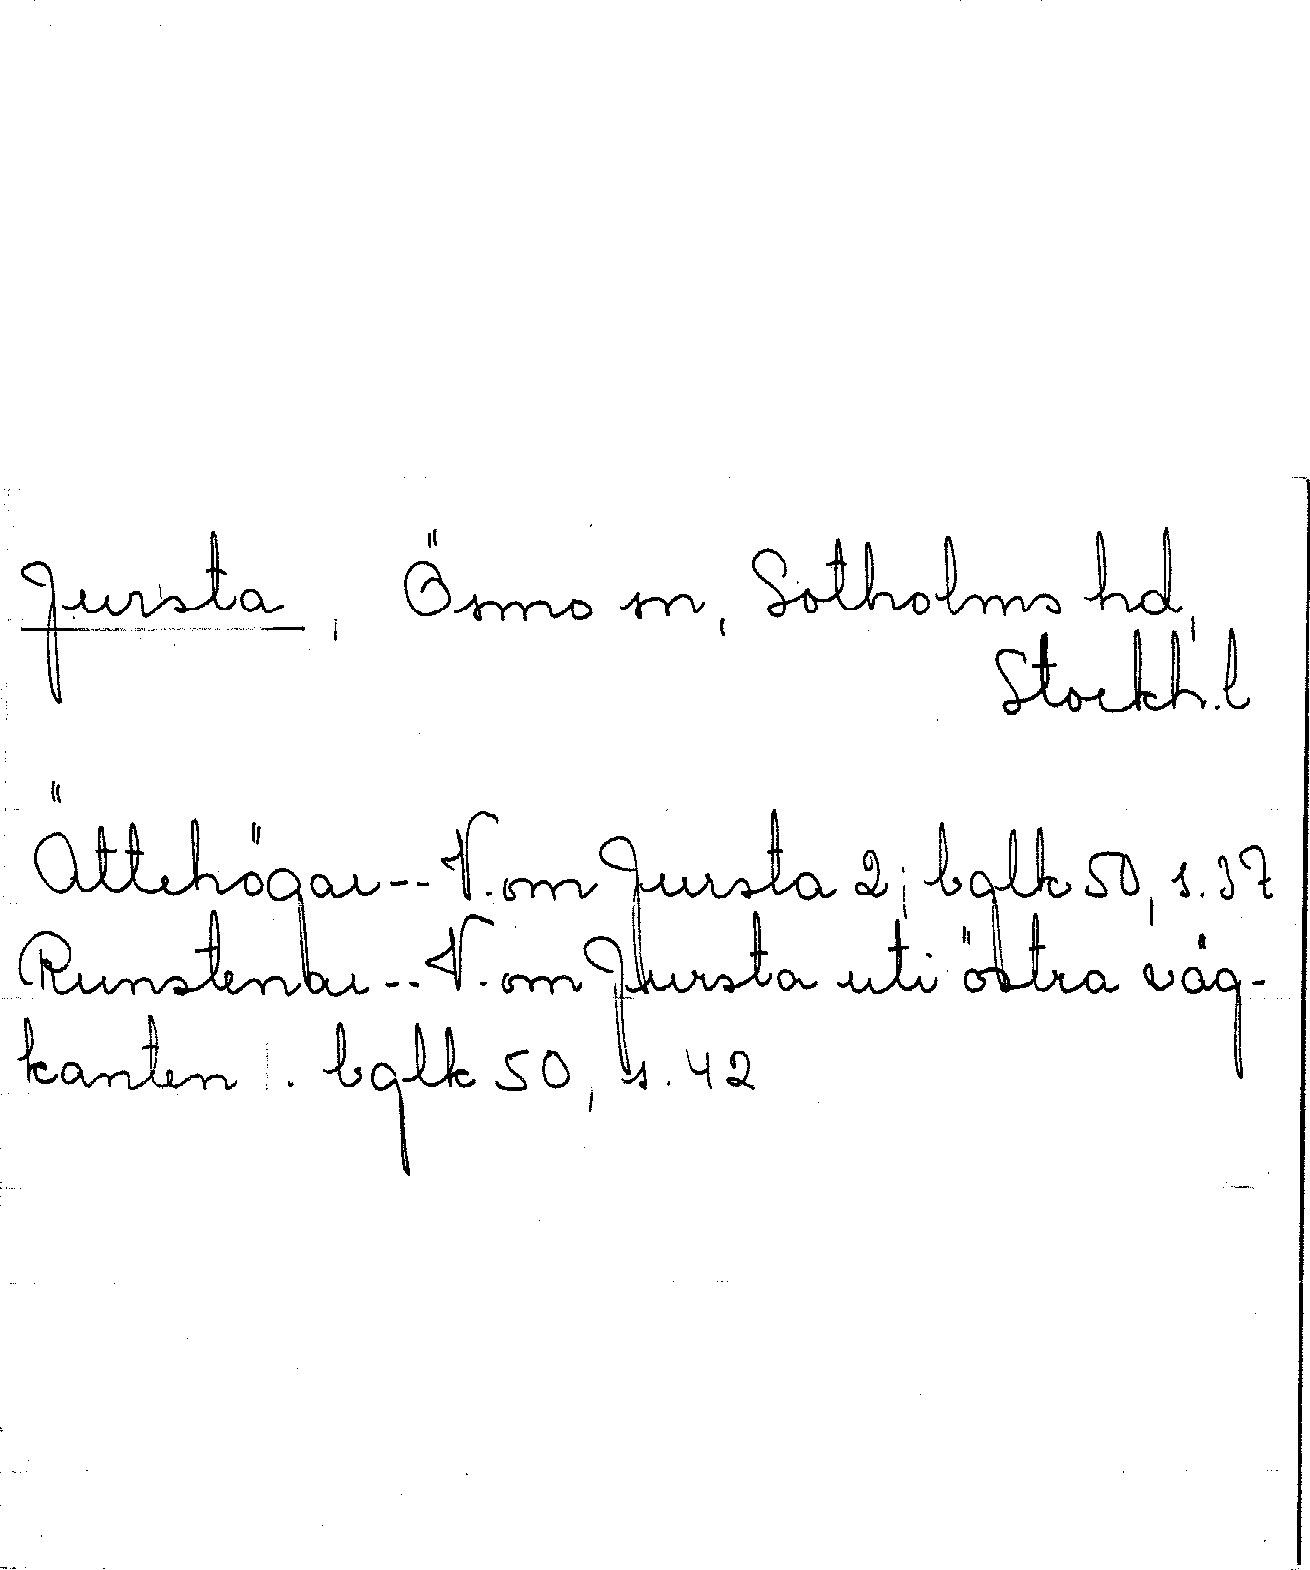 Jursta, Ösmo sn, Sotholms hd,
Stockh.l
Ättehögar -- V. om Jursta 2; bglk 50, s. 37
Runstenar -- V. om Jursta uti östra väg-
kanten 1. bglk 50, s. 42